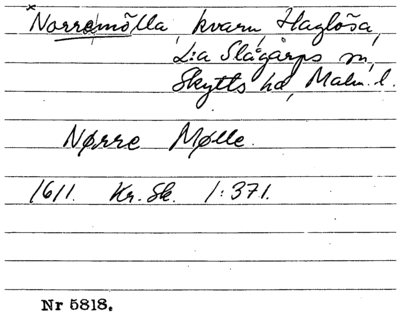 *Norremölla, kvarn, Haglösa,
L:a Slågarps sn,
Skytts hd, Malm. l.
Nørre Mølle.
1611. Kr. Sk. 1:371.
Nr 5818.